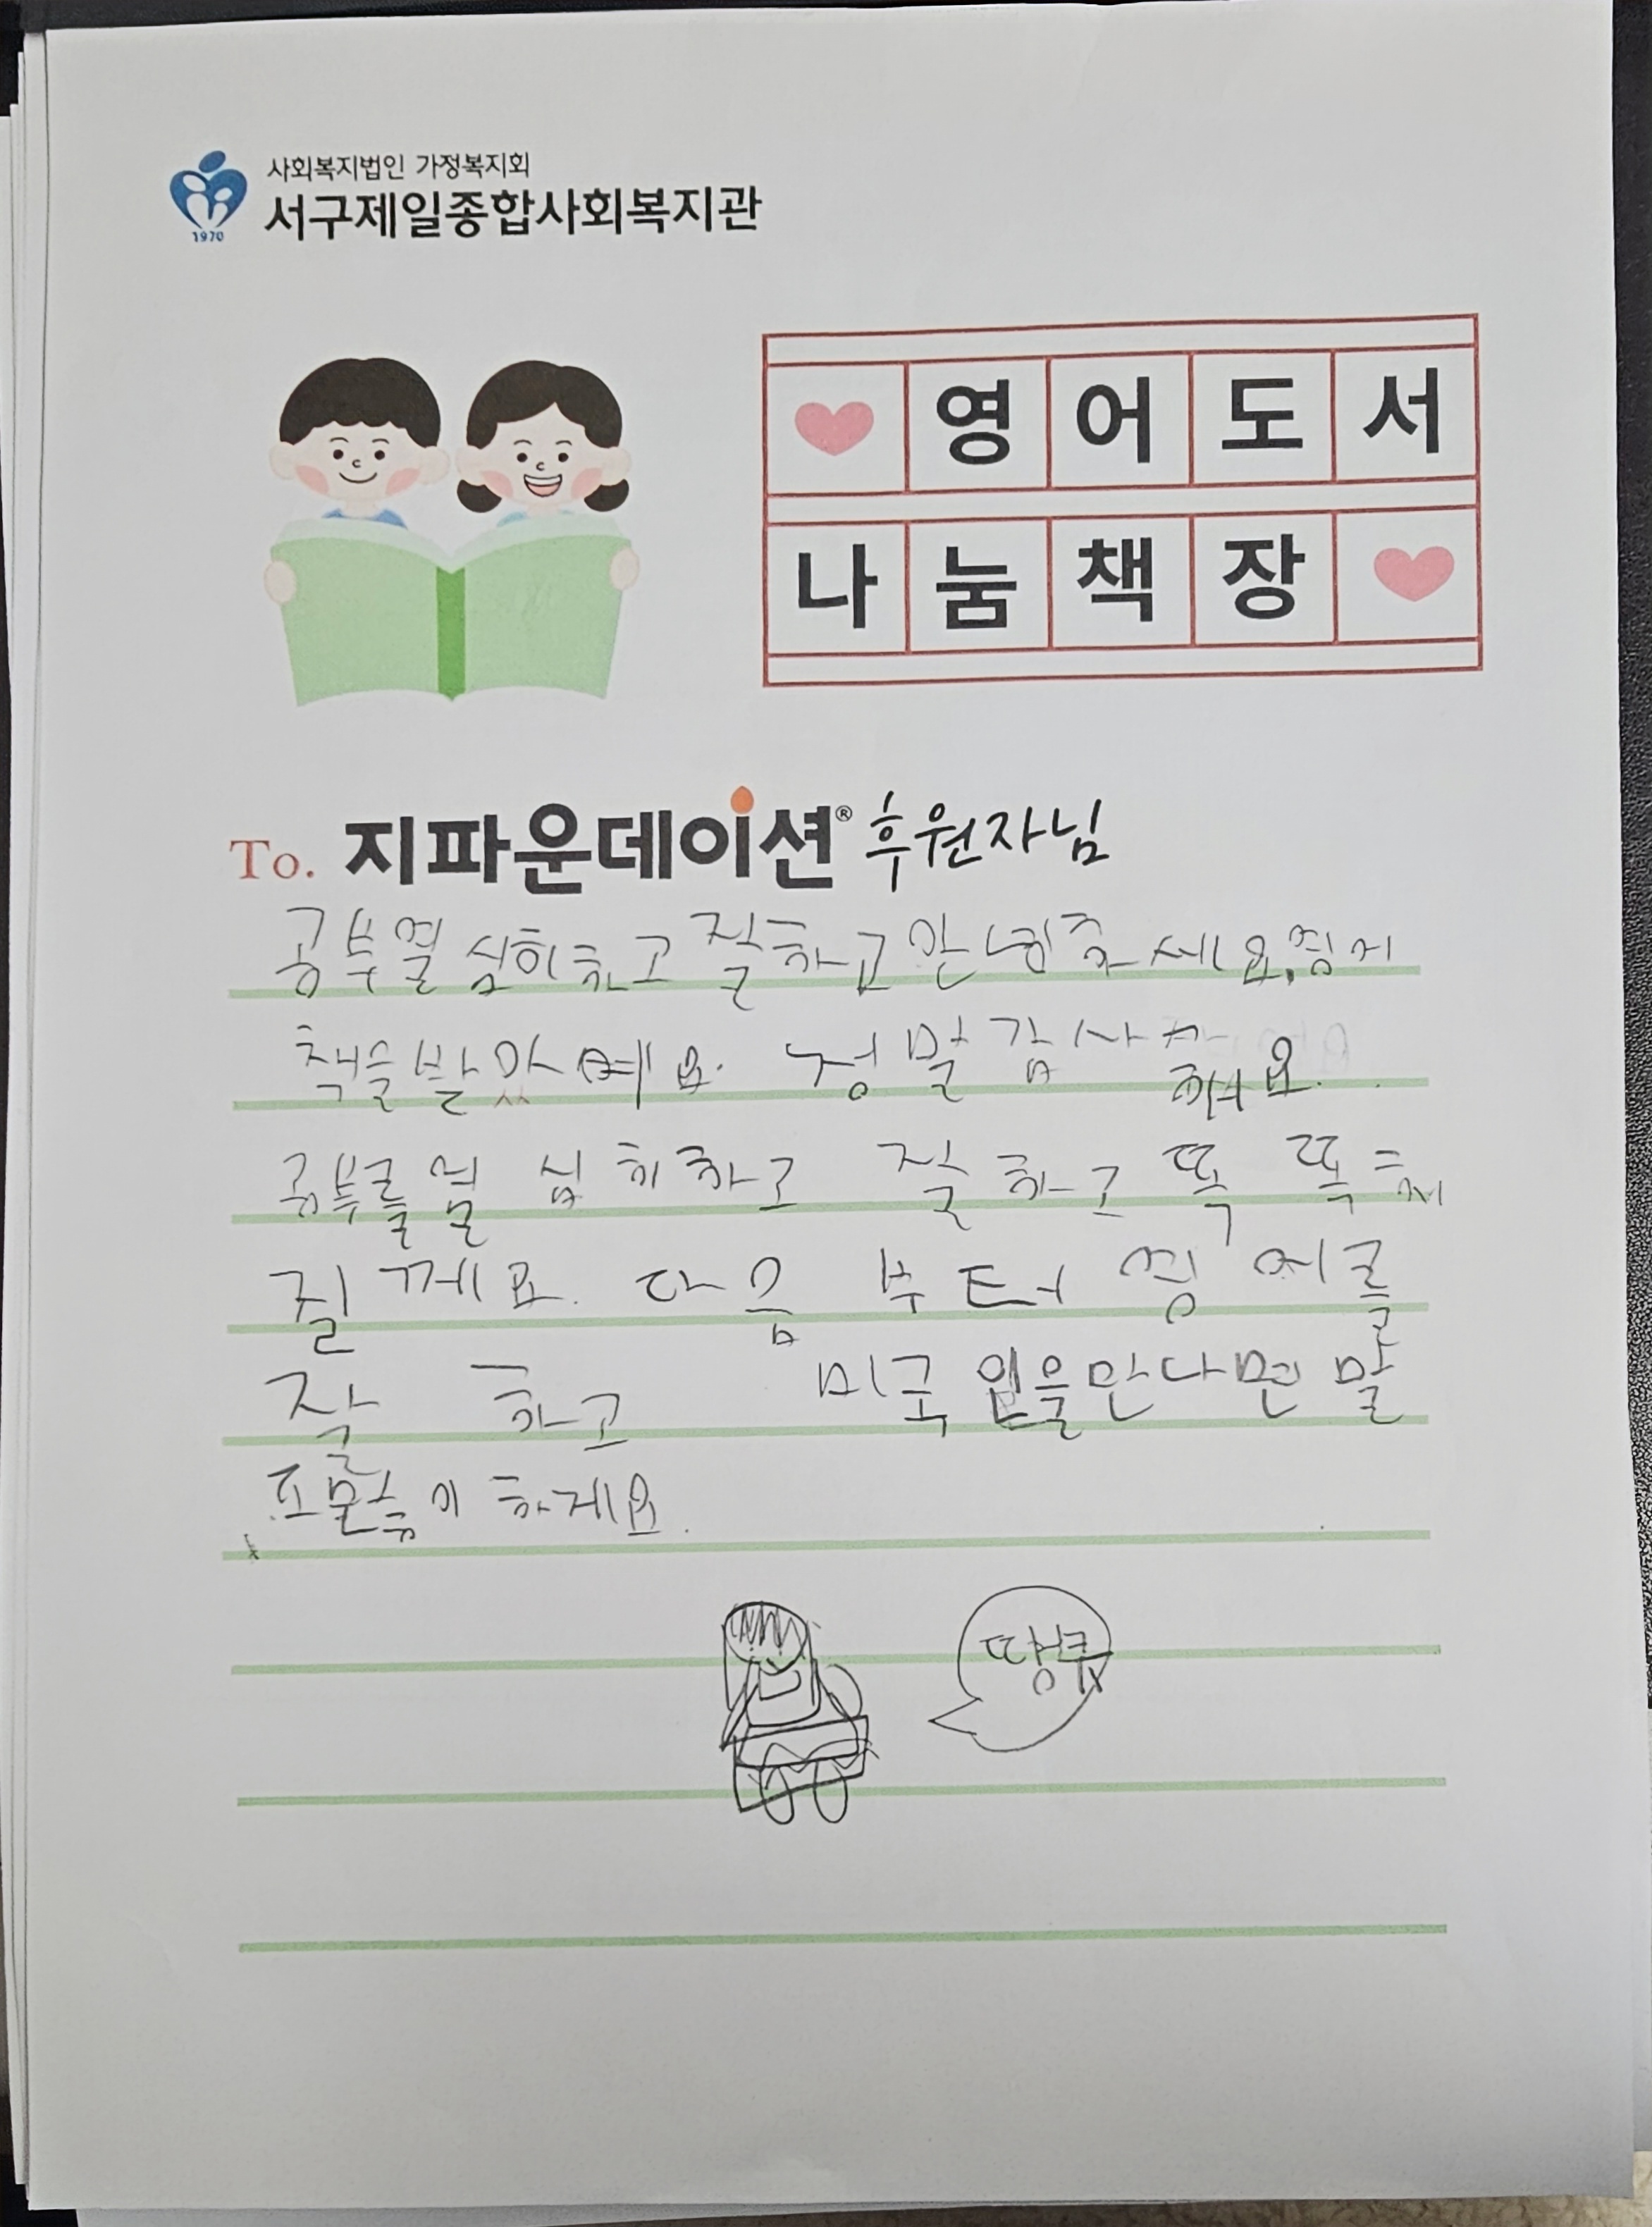 사회복지법인 가정복지회
서구제일종합사회복지관
1970
영어도서
나눔책장
To. 지파운데이션® 후원자님
공부열심히하고 잘하고 안녕하세요.
책을 받았어요. 정말 감사
해요.
공부를 열심히하고 잘하고 똑똑해
질께요. 다음부터 영어를
잘하고 미국인을만나면 말
도 하게요.
땡큐